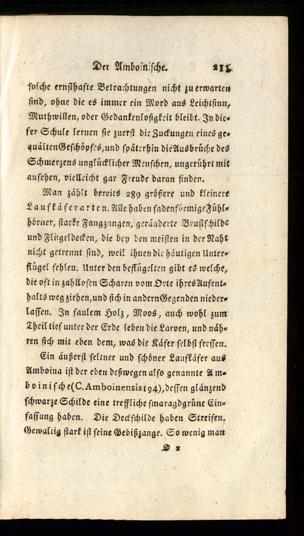 Der Amboinische. 211
solche ernsthafte Betrachtungen nicht zu erwarten
sind, ohne die es immer ein Mord aus Leichtsinn,
Muthwillen, oder Gedankenlosigkeit bleibt. In die-
ser Schule lernen sie zuerst die Zuckungen eines ge-
quälten Geschöpfes, und späterhin die Ausbrüche des
Schmerzens unglücklicher Menschen, ungerührt mit
ansehen, vielleicht gar Freude daran finden.
Man zählt bereits 289 größere und kleinere
Laufkäferarten. Alle haben fadenförmige Fühl-
hörner, starke Fangzangen, geränderte Brustschilde
und Flügeldecken, die bey den meisten in der Naht
nicht getrennt sind, weil ihnen die häutigen Unter-
flügel fehlen. Unter den beflügelten gibt es welche,
die oft in zahllosen Scharen vom Orte ihres Aufent-
halts weg ziehen, und sich in andern Gegenden nieder-
lassen. In faulem Holz, Moos, auch wohl zum
Theil tief unter der Erde leben die Larven, und näh-
ren sich mit eben dem, was die Käfer selbst fressen.
Ein äußerst seltner und schöner Laufkäfer aus
Amboina ist der eben deßwegen also genannte Am-
boinische (C. Amboinensis 194), dessen glänzend
schwarze Schilde eine treffliche smaragdgrüne Ein-
fassung haben. Die Deckschilde haben Streifen.
Gewaltig stark ist seine Gebißzange. So wenig man
O 2